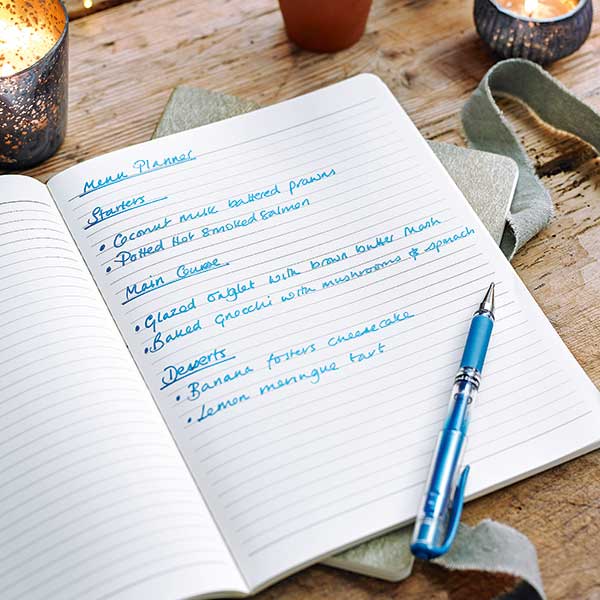 Menu Planner
Starters
• Coconut milk battered prawns
• Potted Hot Smoked Salmon
Main Course
• Glazed Onglet with brown butter Mash
• Baked Gnocchi with mushrooms & spinach
Desserts
• Banana fosters cheesecake
• Lemon meringue tart